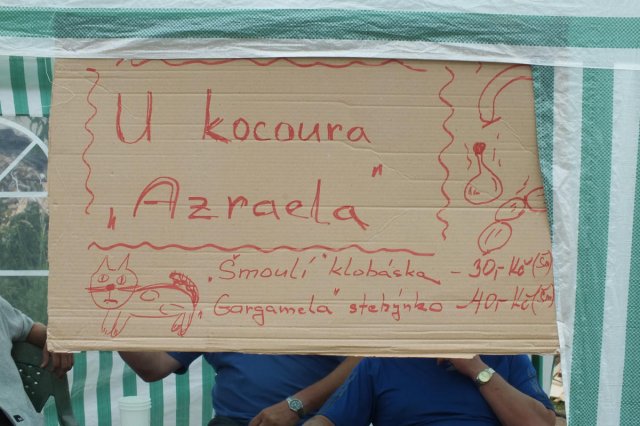 U kocoura
„Azraela“
„Šmoulí“ klobáska - 30,- Kč (Šm)
„Gargamela“ stehýnko - 40,- Kč (Šm)